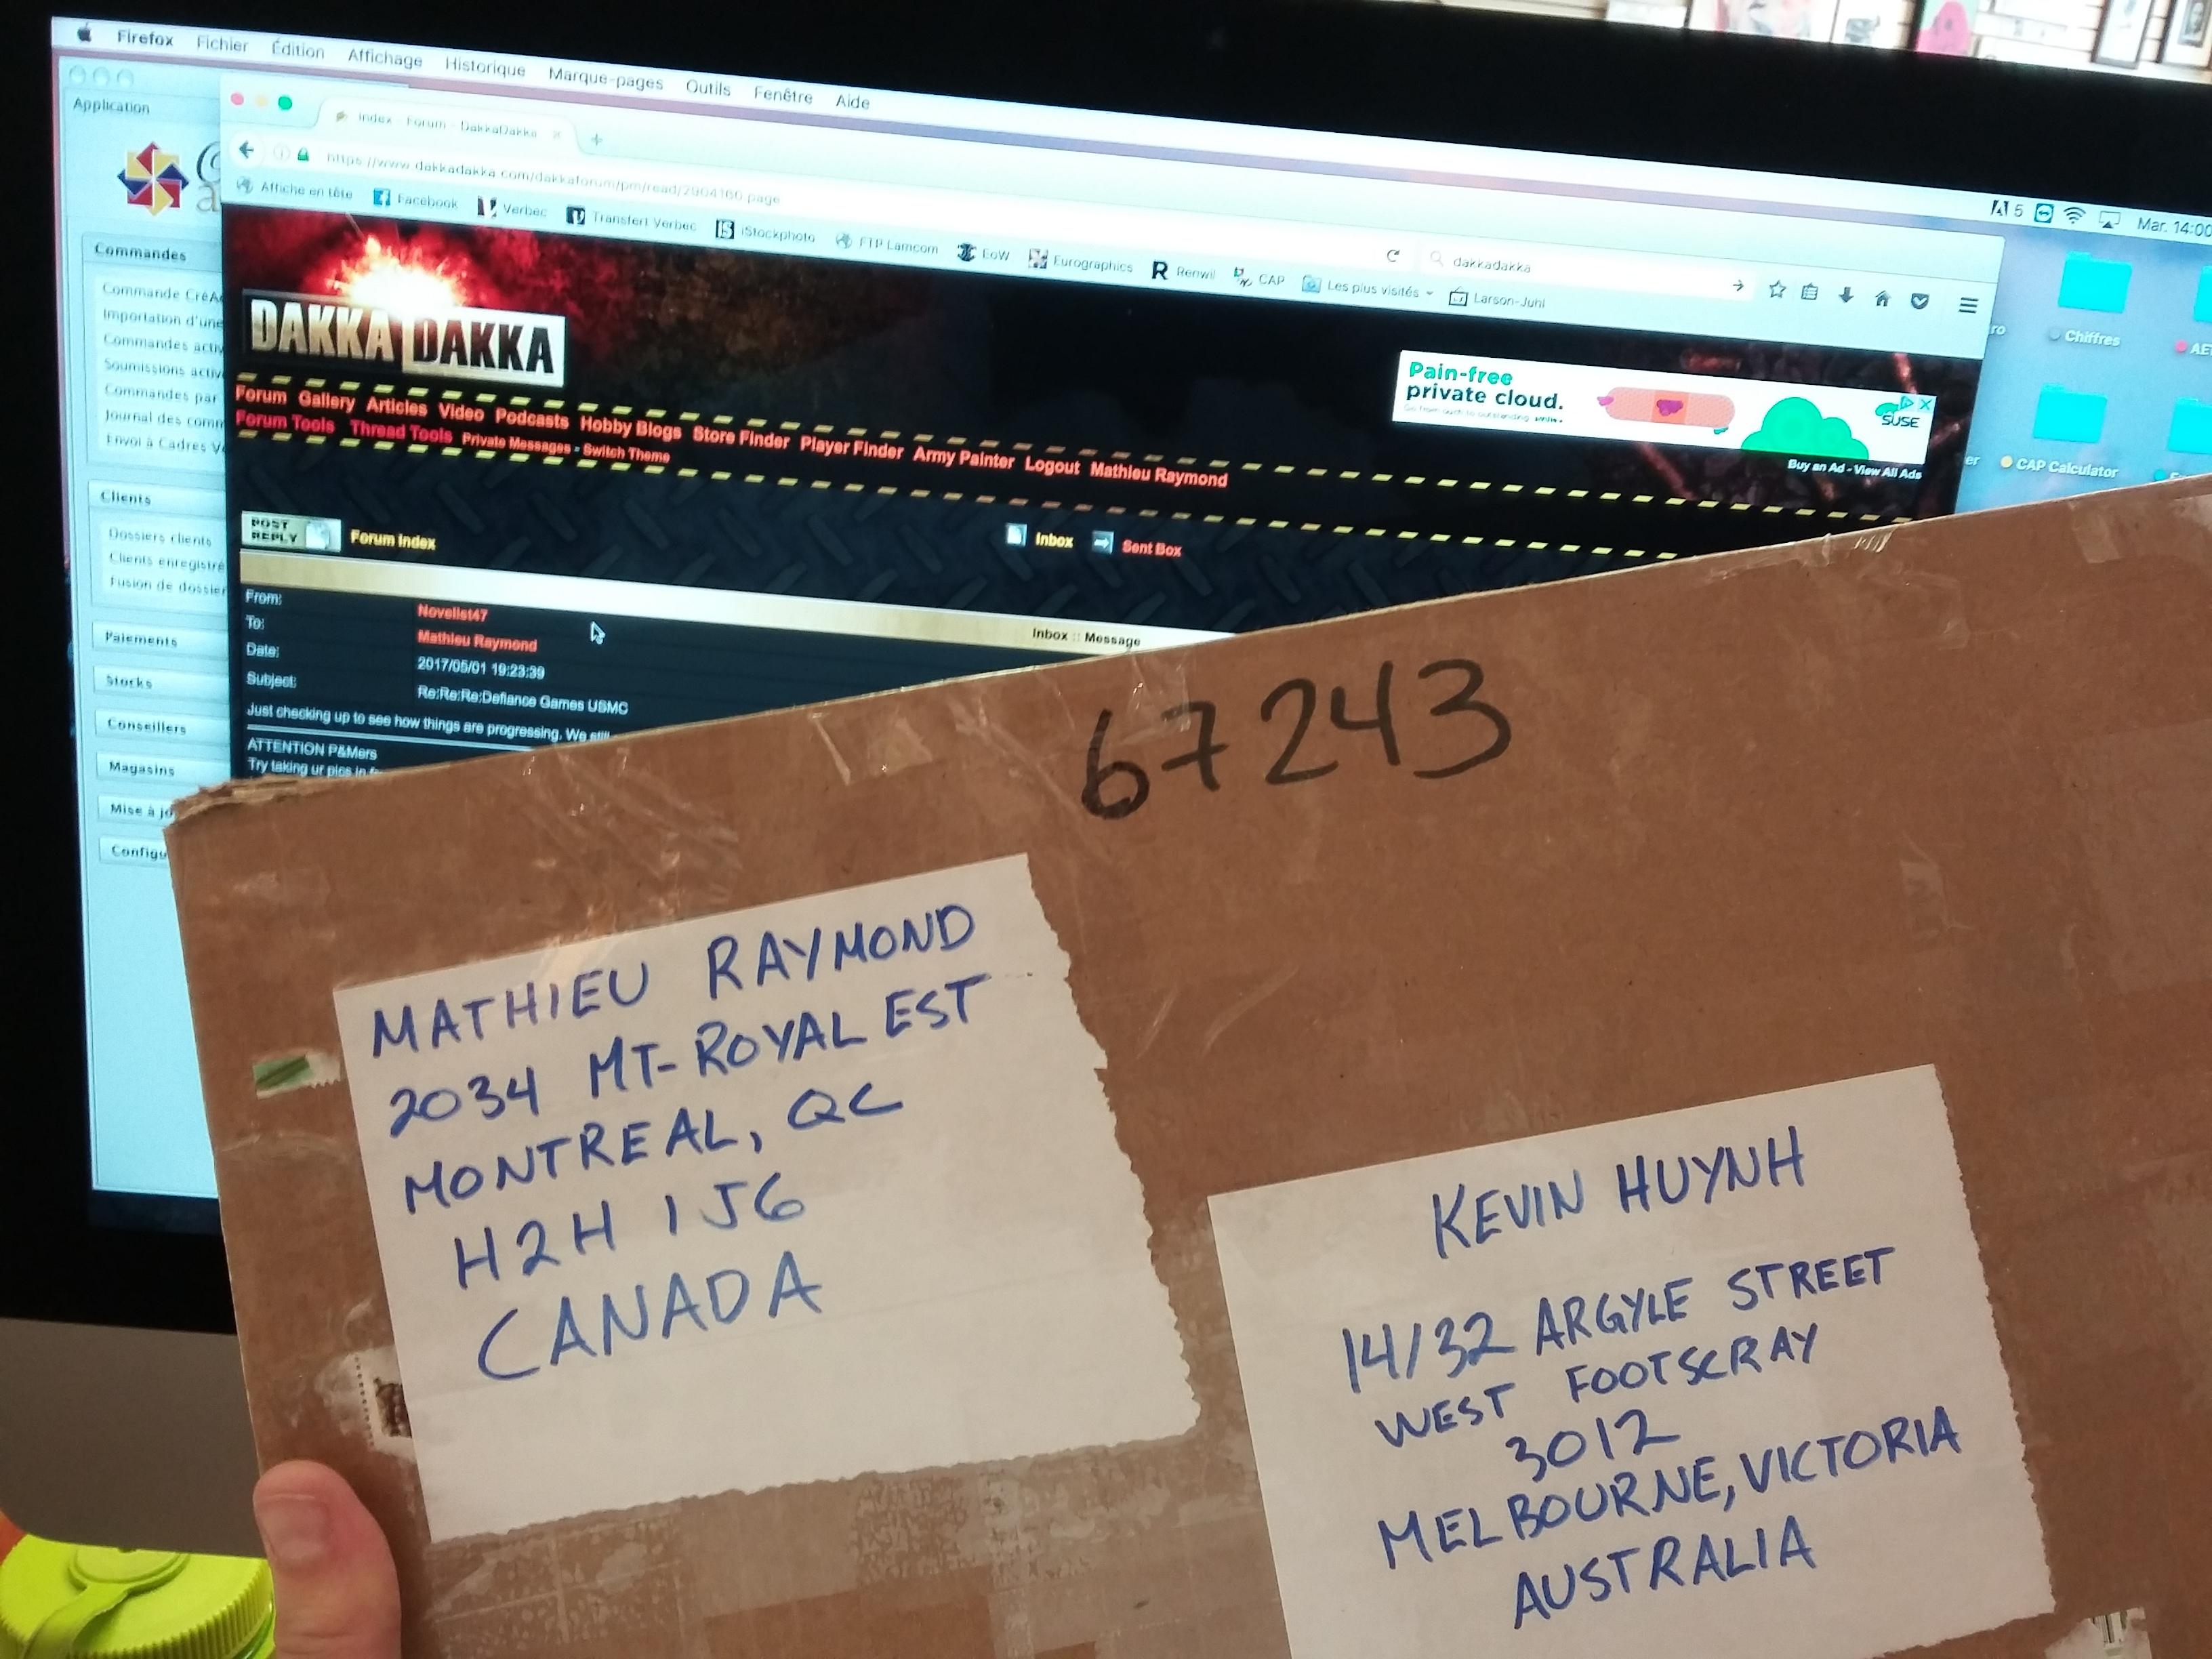 Firefox Fichier Édition Affichage Historique Marque-pages Outils Fenêtre Aide
5 Mar. 14:00
Application
Index - Forum - DakkaDakka
https://www.dakkadakka.com/dakkaforum/pm/read/2904166.page
dakkadakka
Affiche en tête Facebook Verbec Transfert Verbec iStockphoto FTP Lamcom EoW Eurographics Renwil CAP Les plus visités Larson-Juhl
Commandes
Commande
Importation d'une
Commandes
Soumissions
Commandes par
Journal des
Envoi à Cadres
Clients
Dossiers clients
Clients
Fusion de
Paiements
Stocks
Conseillers
Magasins
Mise à
DAKKA DAKKA
Pain-free
private cloud.
SUSE
Buy an Ad - View All Ads
Chiffres
CAP Calculator
Forum Gallery Articles Video Podcasts Hobby Blogs Store Finder Player Finder Army Painter Logout Mathieu Raymond
Forum Tools Thread Tools Private Messages - Switch Theme
POST REPLY
Forum Index
Inbox Sent Box
Inbox :: Message
From: Novelist47
To: Mathieu Raymond
Date: 2017/05/01 19:23:39
Subject: Re:Re:Re:Defiance Games USMC
Just checking up to see how things are progressing. We still
ATTENTION P&Mers
Try taking ur pics in
67243
MATHIEU RAYMOND
2034 MT-ROYAL EST
MONTREAL, QC
H2H 1J6
CANADA
KEVIN HUYNH
14/32 ARGYLE STREET
WEST FOOTSCRAY
3012
MELBOURNE, VICTORIA
AUSTRALIA